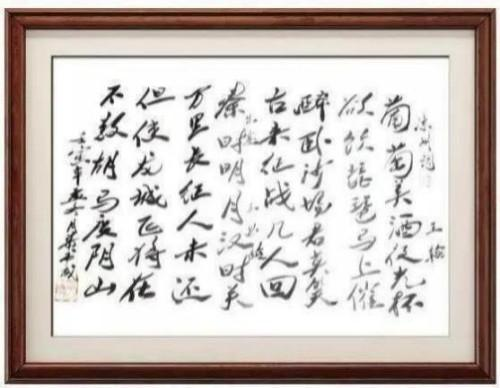 凉州词
王翰
葡萄美酒夜光杯
欲饮琵琶马上催
醉卧沙场君莫笑
古来征战几人回
出塞
王昌龄
秦时明月汉时关
万里长征人未还
但使龙城飞将在
不教胡马度阴山
壬寅年